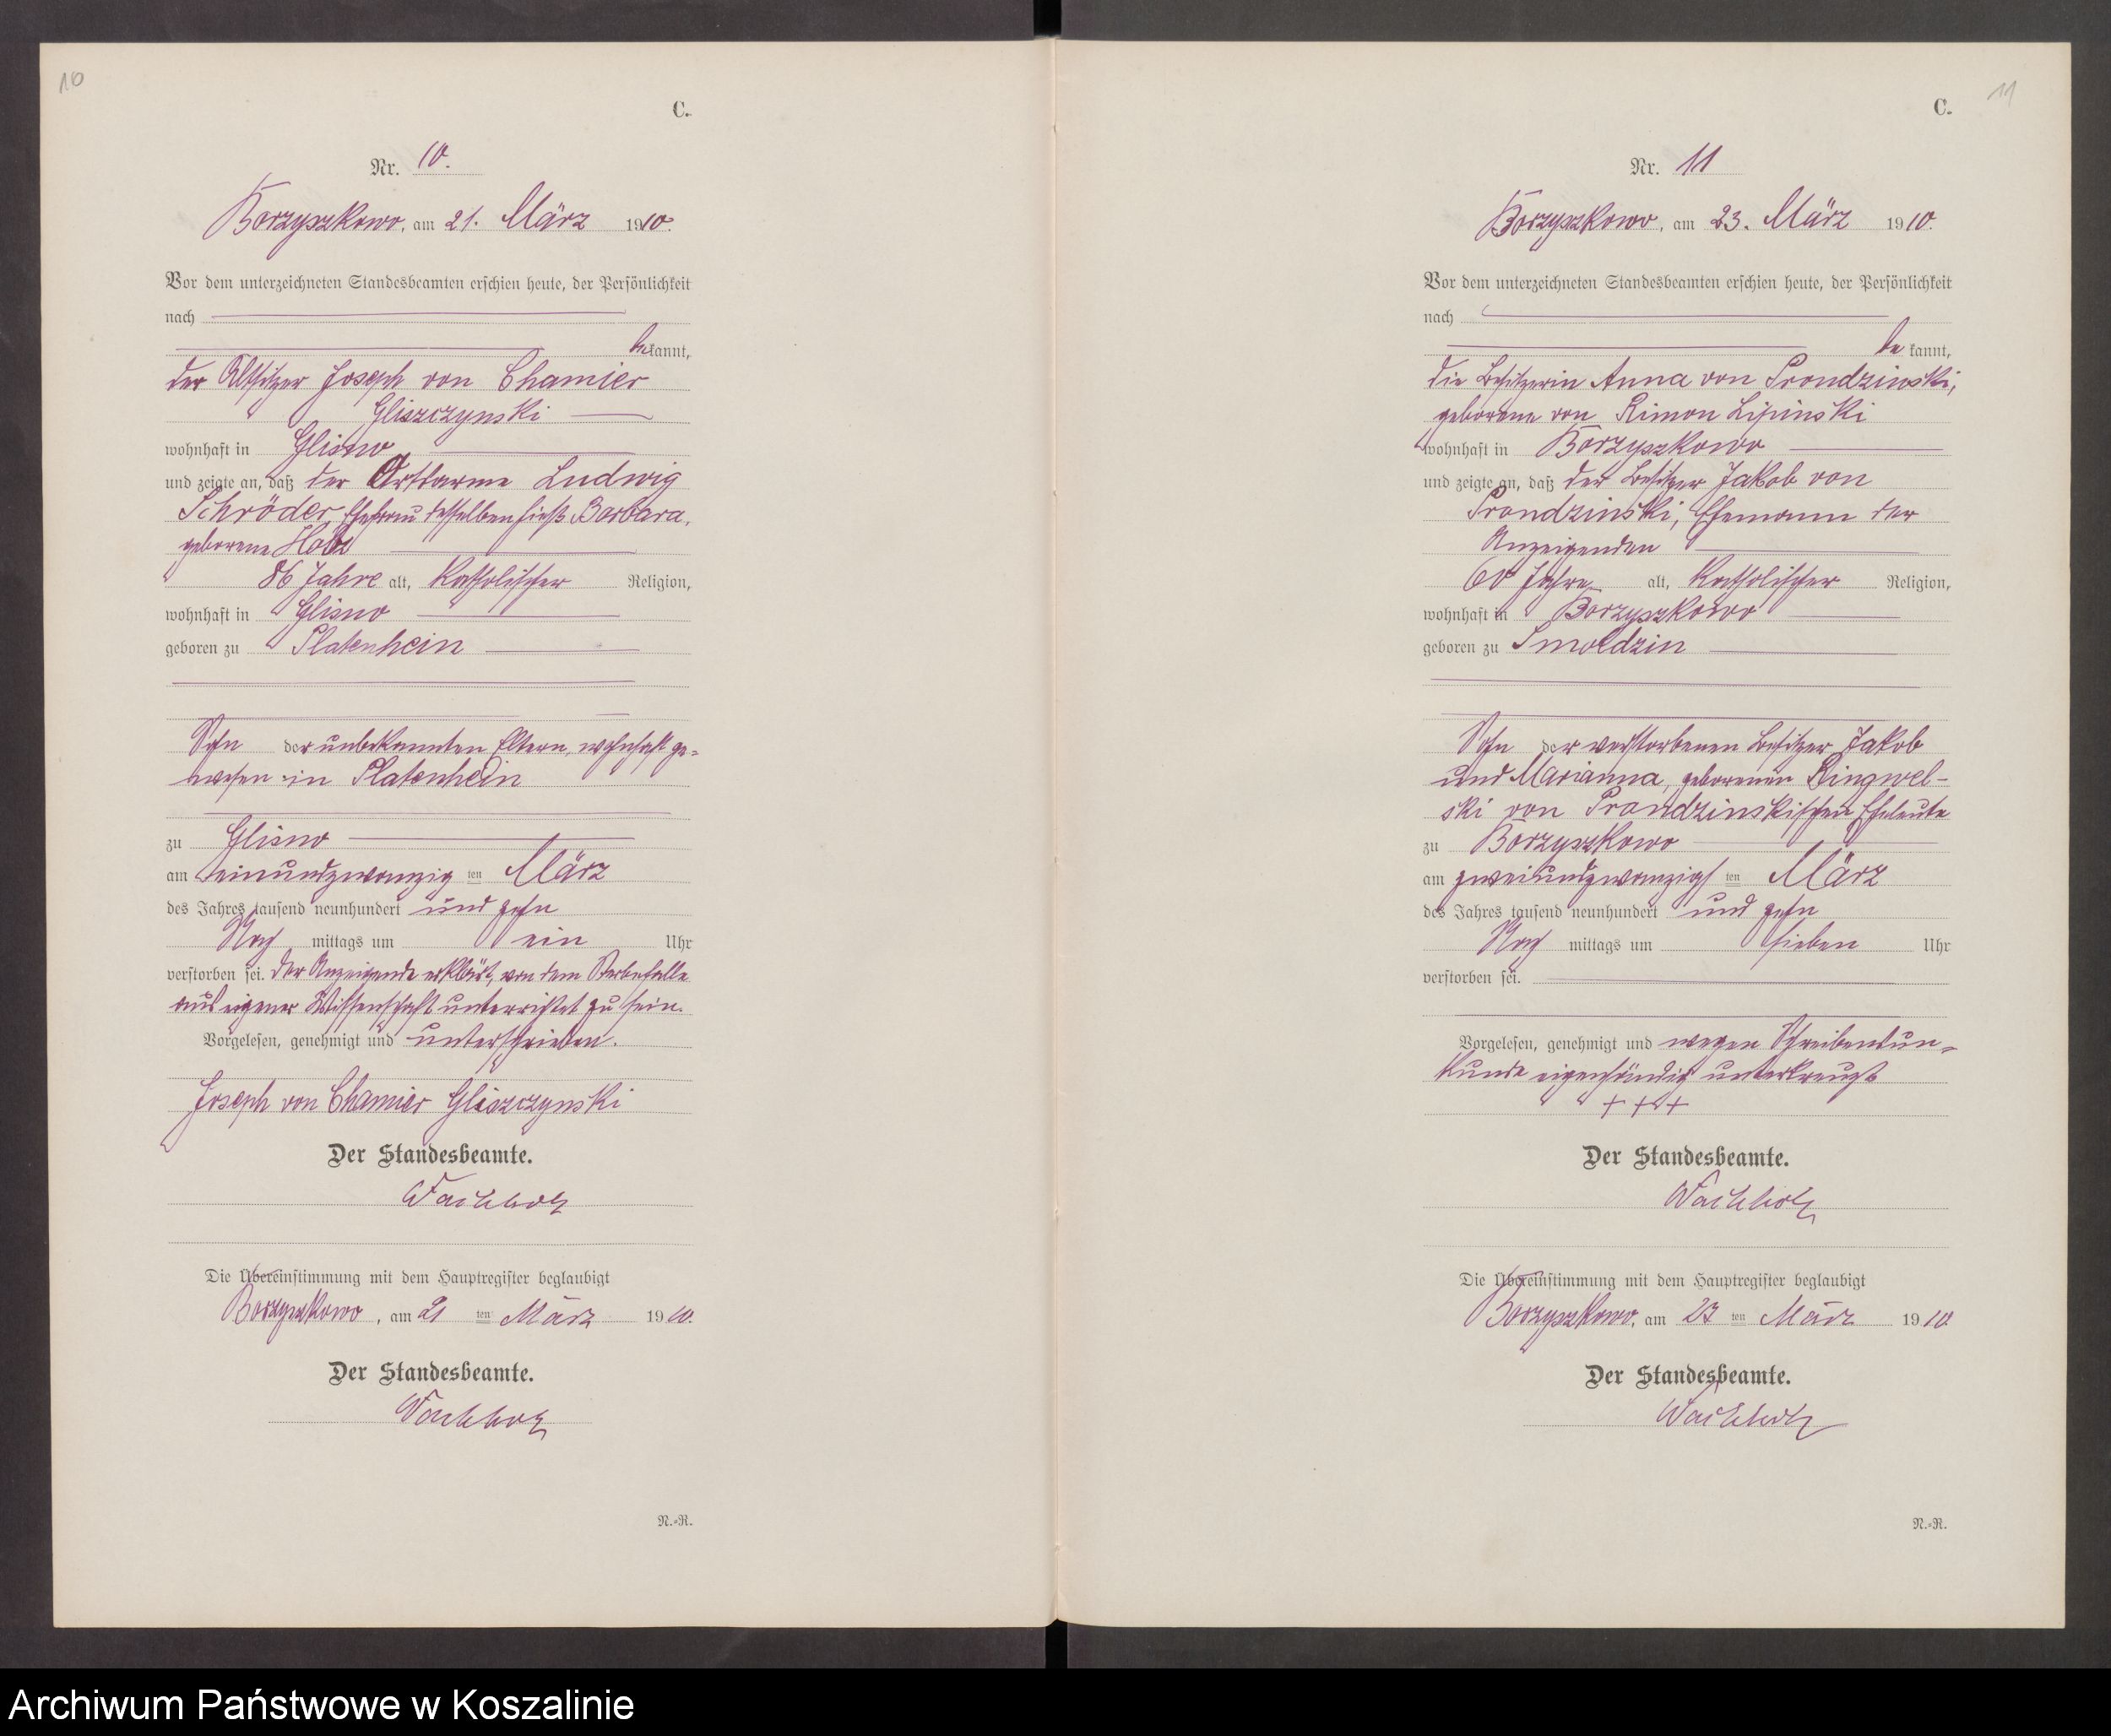 10
C.
Nr. 10.
Borzyszkowo, am 21. März 1910.
Vor dem unterzeichneten Standesbeamten erschien heute, der Persönlichkeit
nach
bekannt,
der Altsitzer Joseph von Chamier
Gliszczynski
wohnhaft in Glisno
und zeigte an, daß der Ortsarme Ludwig
Schröder, Ehefrau desselben hieß Barbara,
geborene
86 Jahre alt, katholischer Religion,
wohnhaft in Glisno
geboren zu Platenhein
Sohn der unbekannten Eltern, wohnhaft ge=
wesen in Platenhein
zu Glisno
am einundzwanzig ten März
des Jahres tausend neunhundert und zehn
Nach mittags um ein Uhr
verstorben sei. Der Anzeigende erklärt, von dem Sterbefalle
aus eigener Wissenschaft unterrichtet zu sein.
Vorgelesen, genehmigt und unterschrieben.
Joseph von Chamier Gliszczynski
Der Standesbeamte.
Wachholz
Die Übereinstimmung mit dem Hauptregister beglaubigt
Borzyszkowo, am 21 ten März 1910.
Der Standesbeamte.
Wachholz
N.=R.
11
C.
Nr. 11
Borzyszkowo, am 23. März 1910.
Vor dem unterzeichneten Standesbeamten erschien heute, der Persönlichkeit
nach
bekannt,
die Besitzerin Anna von Prondzinski,
geborene von Rimon Lipinski
wohnhaft in Borzyszkowo
und zeigte an, daß der Besitzer Jakob von
Prondzinski, Ehemann der
Anzeigenden
60 Jahre alt, katholischer Religion,
wohnhaft in Borzyszkowo
geboren zu Smoldzin
Sohn der verstorbenen Besitzer Jakob
und Marianna, geborenen Ringwel-
ski von Prondzinskischen Eheleute
zu Borzyszkowo
am zweiundzwanzigs ten März
des Jahres tausend neunhundert und zehn
Nach mittags um sieben Uhr
verstorben sei.
Vorgelesen, genehmigt und wegen Schreibensun=
kunde eigenhändig unterkreuzt
+ + +
Der Standesbeamte.
Wachholz
Die Übereinstimmung mit dem Hauptregister beglaubigt
Borzyszkowo, am 23 ten März 1910
Der Standesbeamte.
Wachholz
N.=R.
Archiwum Państwowe w Koszalinie